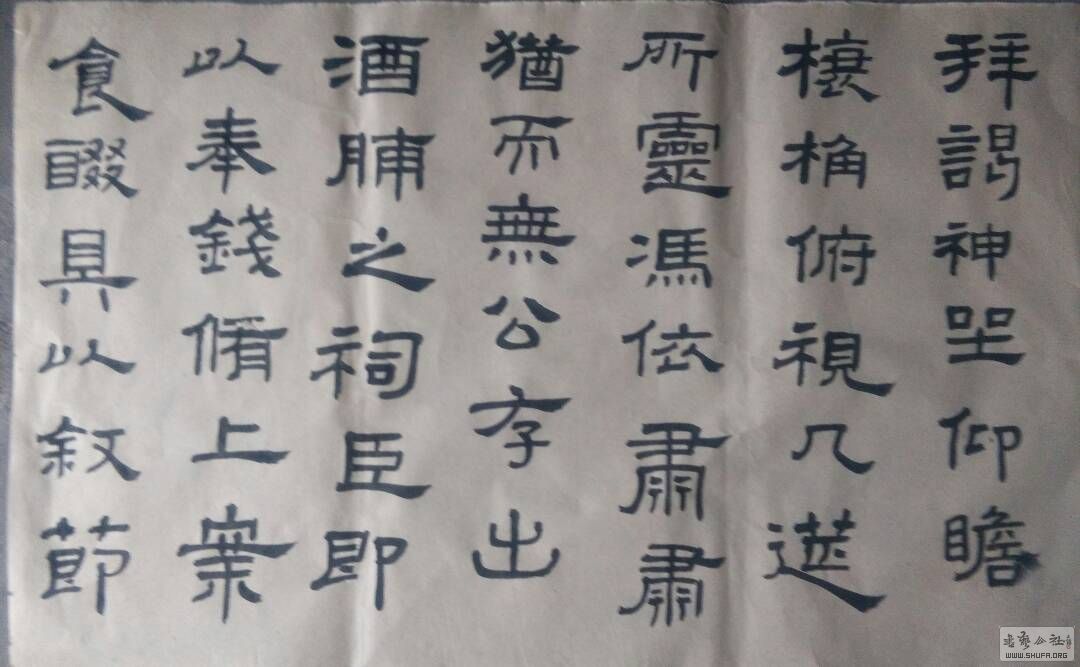 拜謁神坐仰瞻
榱桷俯視几筵
所靈馮依肅肅
猶而無公存出
酒脯之祠臣即
以奉錢脩上案
食醊具以敘節
书艺公社
WWW.SHUFA.ORG